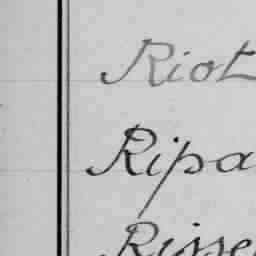 Riot
Ripa
Risse